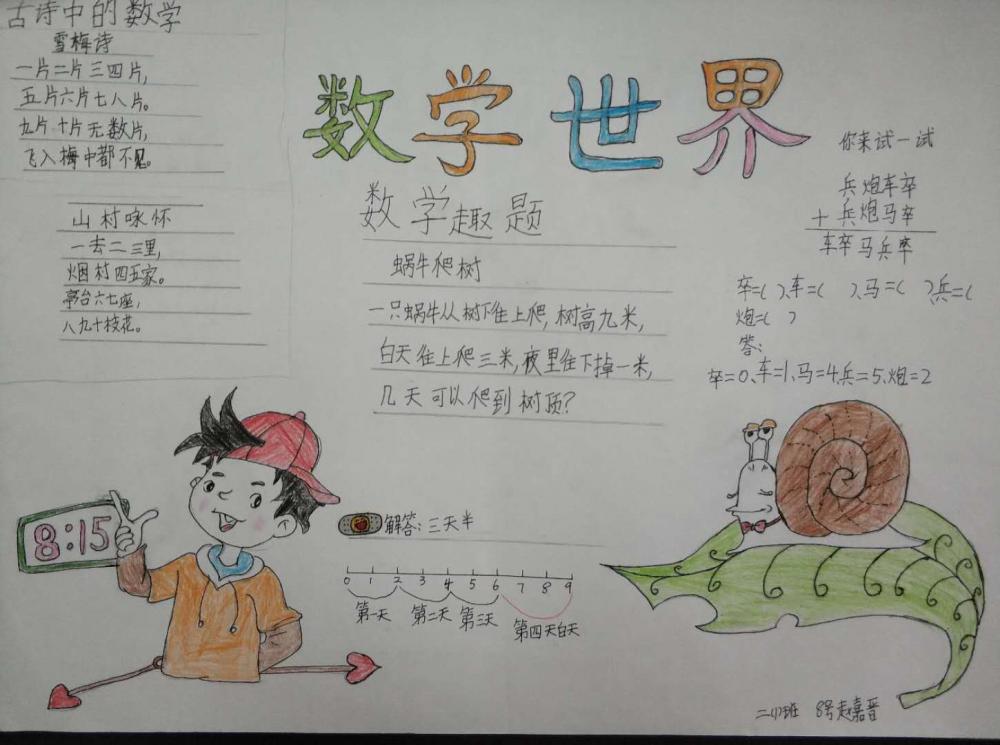 古诗中的数学
雪梅诗
一片二片三四片,
五片六片七八片。
九片十片无数片,
飞入梅中都不见。
山村咏怀
一去二三里,
烟村四五家。
亭台六七座,
八九十枝花。
数学世界
数学趣题
蜗牛爬树
一只蜗牛从树下往上爬,树高九米,
白天往上爬三米,夜里往下掉一米,
几天可以爬到树顶?
解答:三天半
0 1 2 3 4 5 6 7 8 9
第一天 第二天 第三天 第四天白天
你来试一试
兵炮车卒
+兵炮马卒
车卒马兵卒
卒=( )、车=( )、马=( )、兵=(
炮=( )
答:
卒=0、车=1、马=4、兵=5、炮=2
8:15
二(1)班 8号赵嘉晋